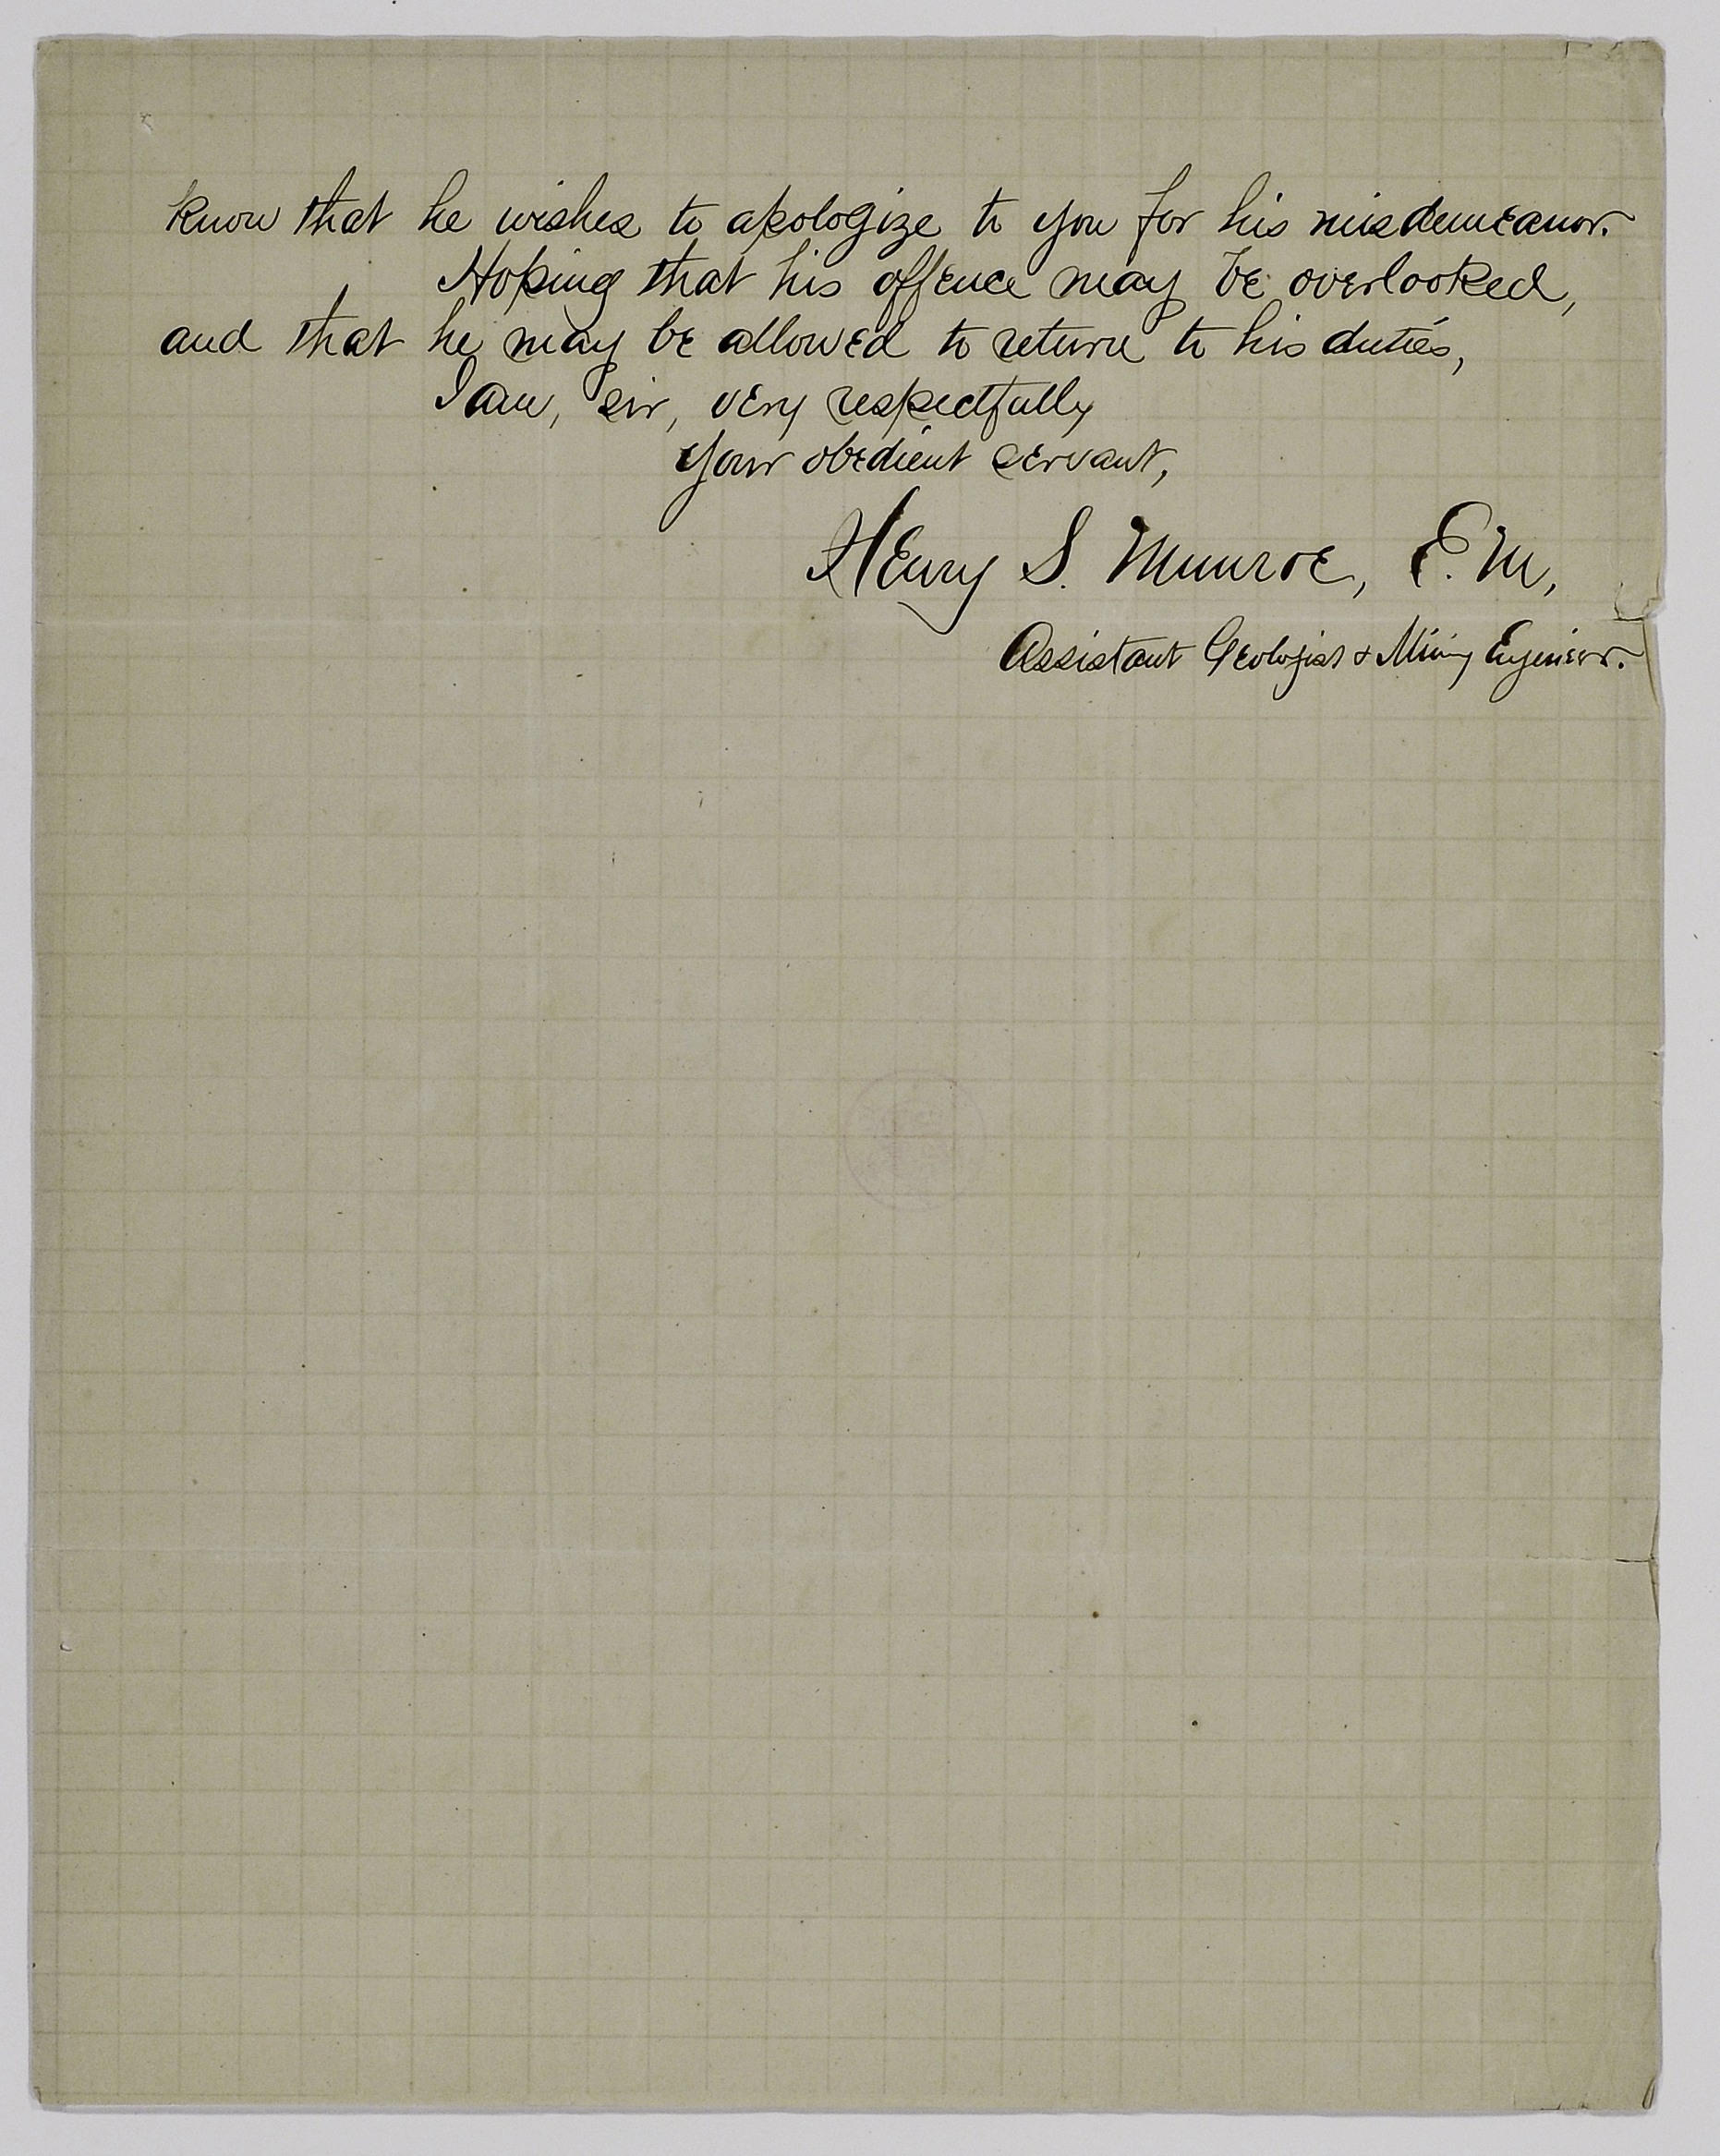 know that he wishes to apologize to you for his misdemeanor.
Hoping that his offence may be overlooked,
and that he may be allowed to return to his duties,
I am, sir, very respectfully
your obedient servant,
Henry S. Munroe, E.M.,
Assistant Geologist & Mining Engineer.